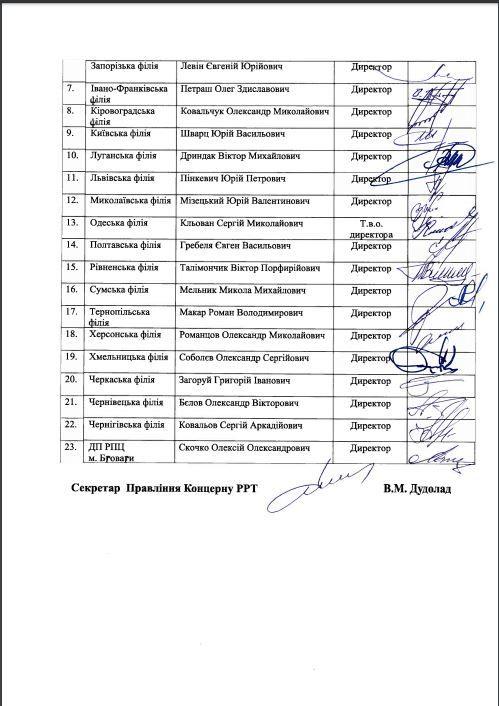 Запорізька філія Левін Євгеній Юрійович Директор
7. Івано-Франківська Петраш Олег Здиславович Директор
філія
8. Кіровоградська Ковальчук Олександр Миколайович Директор
філія
9. Київська філія Шварц Юрій Васильович Директор
10. Луганська філія Дриндак Віктор Михайлович Директор
11. Львівська філія Пінкевич Юрій Петрович Директор
12. Миколаївська філія Мізецький Юрій Валентинович Директор
13. Одеська філія Кльован Сергій Миколайович Т.в.о.
директора
14. Полтавська філія Гребеля Євген Васильович Директор
15. Рівненська філія Талімончик Віктор Порфирійович Директор
16. Сумська філія Мельник Микола Михайлович Директор
17. Тернопільська Макар Роман Володимирович Директор
філія
18. Херсонська філія Романцов Олександр Миколайович Директор
19. Хмельницька філія Соболєв Олександр Сергійович Директор
20. Черкаська філія Загоруй Григорій Іванович Директор
21. Чернівецька філія Бєлов Олександр Вікторович Директор
22. Чернігівська філія Ковальов Сергій Аркадійович Директор
23. ДП РПЦ Скочко Олексій Олександрович Директор
м. Бровари
Секретар Правління Концерну РРТ В.М. Дудолад